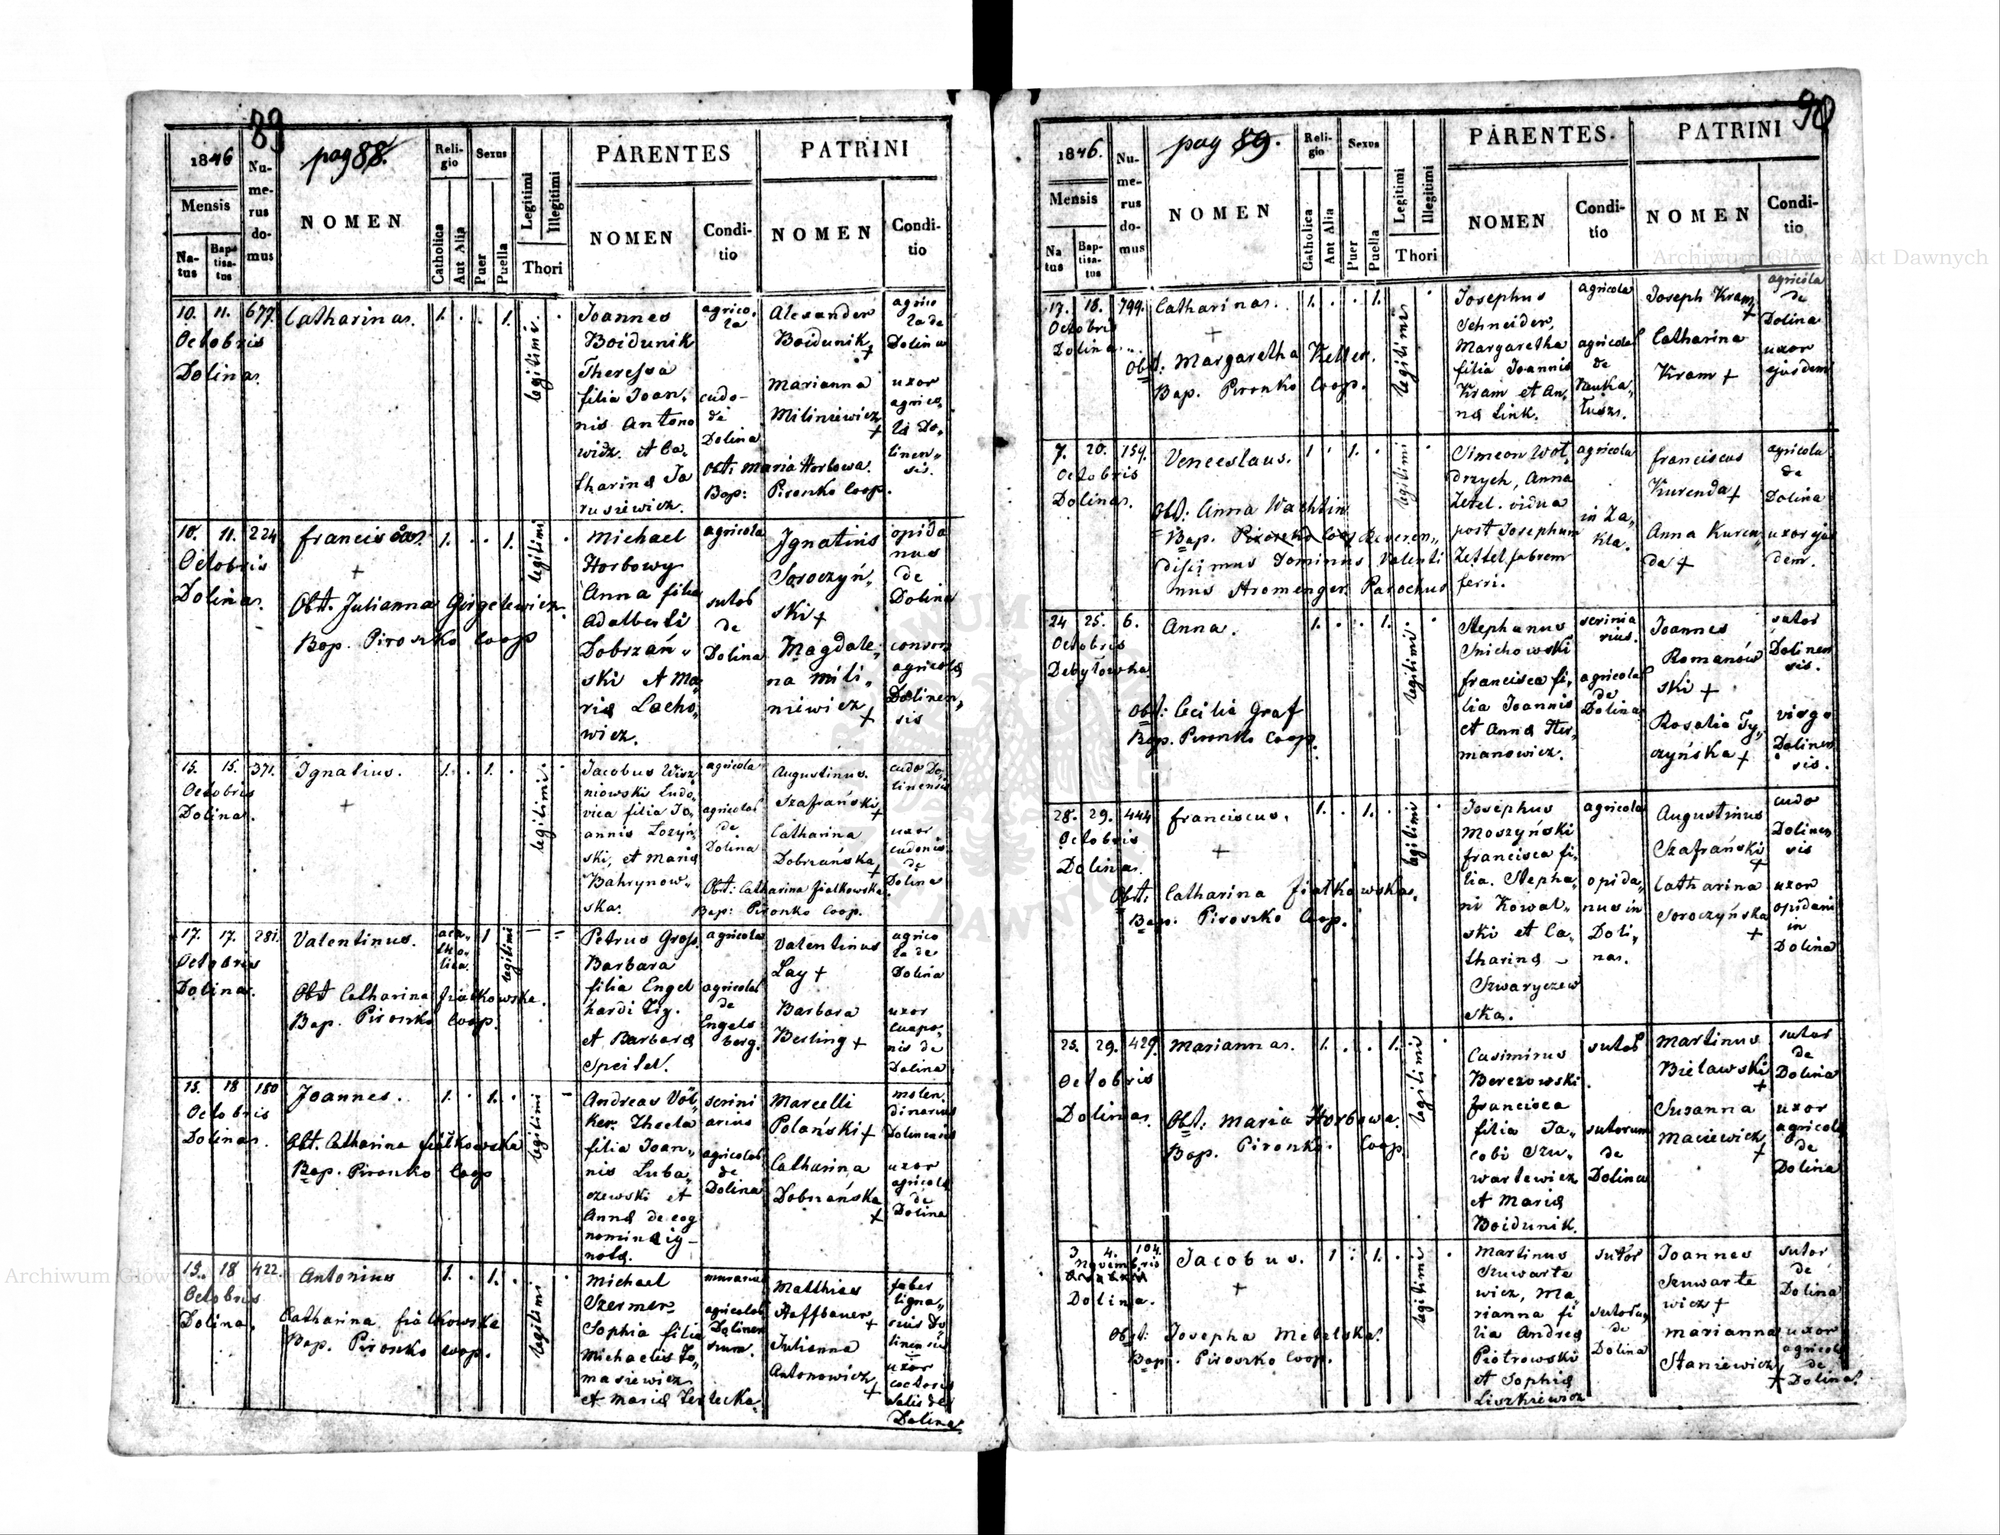 89
1846
pag 88.
Mensis
Na-
tus
Bap-
tisa-
tus
Nu-
me-
rus
do-
mus
NOMEN
Reli-
gio
Catholica
Aut Alia
Sexus
Puer
Puella
Legitimi
Illegitimi
Thori
PARENTES
NOMEN
Condi-
tio
PATRINI
NOMEN
Condi-
tio
10. 11. 677.
Octobris
Dolina.
Catharina.
1. . . 1.
legitimi.
Joannes
Boidunik
Theressa
filia Joan,
nis Antono
wicz. et Ca,
tharina Ja
rusiewicz.
agrico,
la
cudo-
de
Dolina
Alexander
Boidunik +
Marianna
Miliniewicz
+
agrico
la de
Dolina
uxor
agrico,
la Do,
linen-
sis.
Obst: Maria Horbowa.
Bap: Piroszko Coop.
10. 11. 224
Octobris
Dolina.
Francisca.
+
Obst. Julianna Girgelewicz.
Bap. Piroszko Coop
1. . . 1.
legitimi
Michael
Horbowy
Anna filia
Adalberti
Dobrzań,
ski et Ma
ria Lacho,
wicz.
agricola
sutor
de
Dolina
Ignatius
Soroczyń,
ski +
Magdale,
na Mili,
niewicz
+
opida
nus
de
Dolina
consors
agricola
Dolinen,
sis
15. 15. 371.
Octobris
Dolina.
Ignatius.
+
1. . 1. .
legitimi.
Jacobus Wisz
niowski Ludo,
vica filia Jo,
annis Lozyń
ski, et Maria
Bahrynow,
ska.
agricola
agricola
de
Dolina
Augustinus.
Szafrański +
Catharina
Dobrzańska
+
cudo Do,
linensis
uxor
cudonis
de
Dolina
Obst: Catharina Fiałkowska.
Bap: Piroszko Coop.
17. 17. 281.
Octobris
Dolina.
Valentinus.
Obst Catharina Fiałkowska.
Bap. Piroszko Coop.
aca,
tho,
lica.
1
legitimi
Petrus Gross.
Barbara
filia Engel
hardi Zig.
et Barbara
Speitel.
agricola
agricola
de
Engels
berg.
Valentinus
Lay +
Barbara
Berling +
agrico
la de
Dolina
uxor
cupo,
nis de
Dolina
15. 18 180
Octobris
Dolina.
Joannes.
Obst. Catharina Fiałkowska
Bap. Piroszko Coop
1. . 1. .
legitimi
Andreas Völ,
ker. Thecla
filia Joan,
nis Luba,
szewski et
Anna de cog
nomina ig-
nota.
scrini
arius
agricola
de
Dolina
Marcelli
Polański +
Catharina
Dobrzańska
+
molen
dinarius
Dolinensis
uxor
agricola
de
Dolina
15. 18 422.
Octobris
Dolina.
Antonius
Catharina Fiałkowska
Bap. Piroszko Coop.
1. . 1. .
legitimi
Michael
Szermer
Sophia filia
Michaelis To,
masiewicz
et Maria Terlecka.
agricola
Dolinen
Matthias
Haffbauer +
Julianna
Antonowicz
+
faber
ligna,
rius Do
linensis
uxor
coctoris
salis de
Dolina
90
1846.
pag 89.
Mensis
Na
tus
Bap-
tisa-
tus
Nu-
me-
rus
do-
mus
NOMEN
Reli-
gio
Catholica
Aut Alia
Sexus
Puer
Puella
Legitimi
Illegitimi
Thori
PARENTES.
NOMEN
Condi-
tio
PATRINI
NOMEN
Condi-
tio
17. 18. 799.
Octobris
Dolina.
Catharina.
+
Obst. Margaretha Keller.
Bap. Piroszko Coop.
1. . . 1.
legitimi
Josephus
Schneider,
Margaretha
filia Joannis
Kram et An,
na Link.
agricola
agricola
de
Josephus Kram
+
Catharina
Kram +
agricola
de
Dolina
uxor
ejusdem
7. 20. 154.
Octobris
Dolina.
Venceslaus.
Obst: Anna Wachtin
Bap. Piroszko Coop Reveren,,
dissimus Dominus Valenti
nus Hromenger Parochus
1 . 1. .
legitimi
Simeon Wot,
drzych, Anna
Zetel. vidua
post Josephum
Zettel fabrem
ferri.
agricola
in Za,
kla.
Franciscus
Kurenda +
Anna Kuren,,
da +
agricola
de
Dolina
uxor ejus
dem.
24 25. 6.
Octobris
Debytowka
Anna.
Obst: Cecilia Graf
Bap. Piroszko Coop.
1. . . 1.
legitimi.
Stephanus
Snichowski
Francisca fi,
lia Joannis
et Anna Her,
manowicz.
scrinia
rius.
agricola
de
Dolina
Joannes
Romanow
ski +
Rosalia Ty,
czyńska +
sutor
Dolinen
sis.
virgo
Dolinen
sis.
28. 29. 444
Octobris
Dolina.
Franciscus.
+
Obst: Catharina Fiałkowska.
Bap. Piroszko Coop.
1. . 1. .
legitimi
Josephus
Moszyński
Francisca fi,
lia. Stepha,
ni Kowal,
ski et Ca,
tharina -
Szwaryczew
ska.
agricola
opida,
nus in
Doli,
na.
Augustinus
Szafrański
+
Catharina
Soroczyńska
+
cudo
Dolinen
sis
uxor
opidani
in
Dolina
25. 29. 429.
Octobris
Dolina.
Marianna.
Obst: Maria Horbowa.
Bap. Piroszko. Coop
1. . . 1.
legitimi
Casimirus
Berezowski
Francisca
filia Ja,
cobi Szu,
wartewicz
et Maria
Boidunik.
sutor
sutorum
de
Dolina
Martinus
Bielawski
+
Susanna
Maciewicz
+
sutor
de
Dolina
uxor
agricola
de
Dolina
3 4. 104.
Novembris
Dolina.
Jacobus.
+
Obst: Josepha Mebelska.
Bap. Piroszko Coop.
1 . 1. .
legitimi
Martinus
Szuwarte
wicz, Ma,
rianna fi
lia Andrea
Piotrowski
et Sophia
Liszkiewicz
sutor
de
Dolina
Joannes
Szuwarte
wicz +
Marianna
Staniewicz
+
sutor
de
Dolina
uxor
agricola
de
Dolina.
Archiwum Główne Akt Dawnych
Archiwum Główne Akt Dawnych
ARCHIWUM GŁÓWNE AKT DAWNYCH